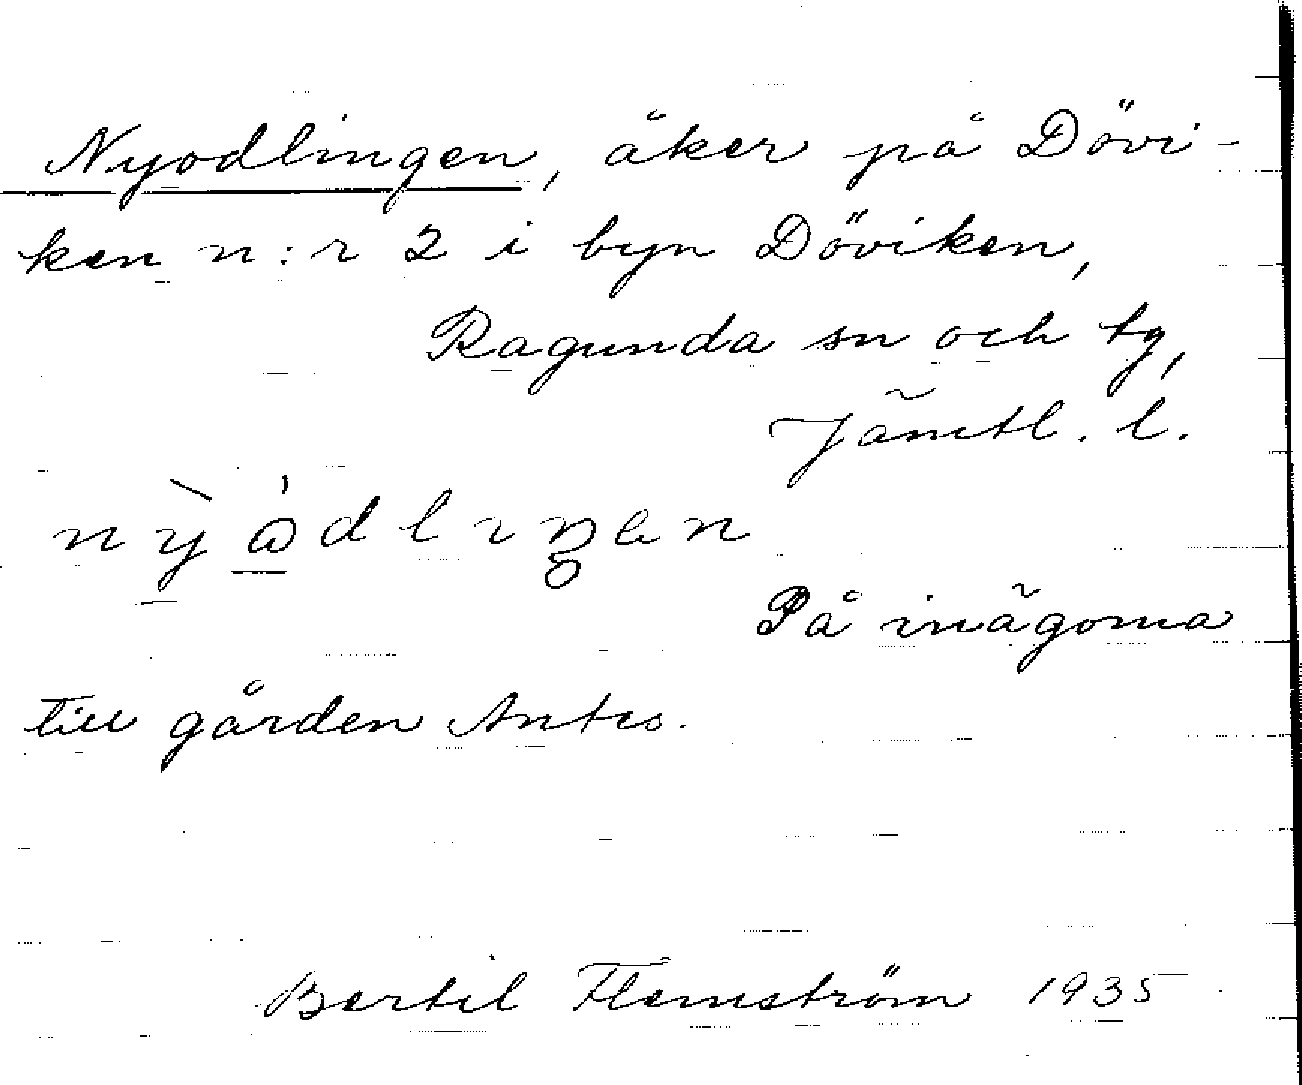 Nyodlingen, åker på Dövi-
ken n:r 2 i byn Döviken,
Ragunda sn och tg,
Jämtl. l.
På inägorna
till gården Antes.
Bertil Flemström 1935